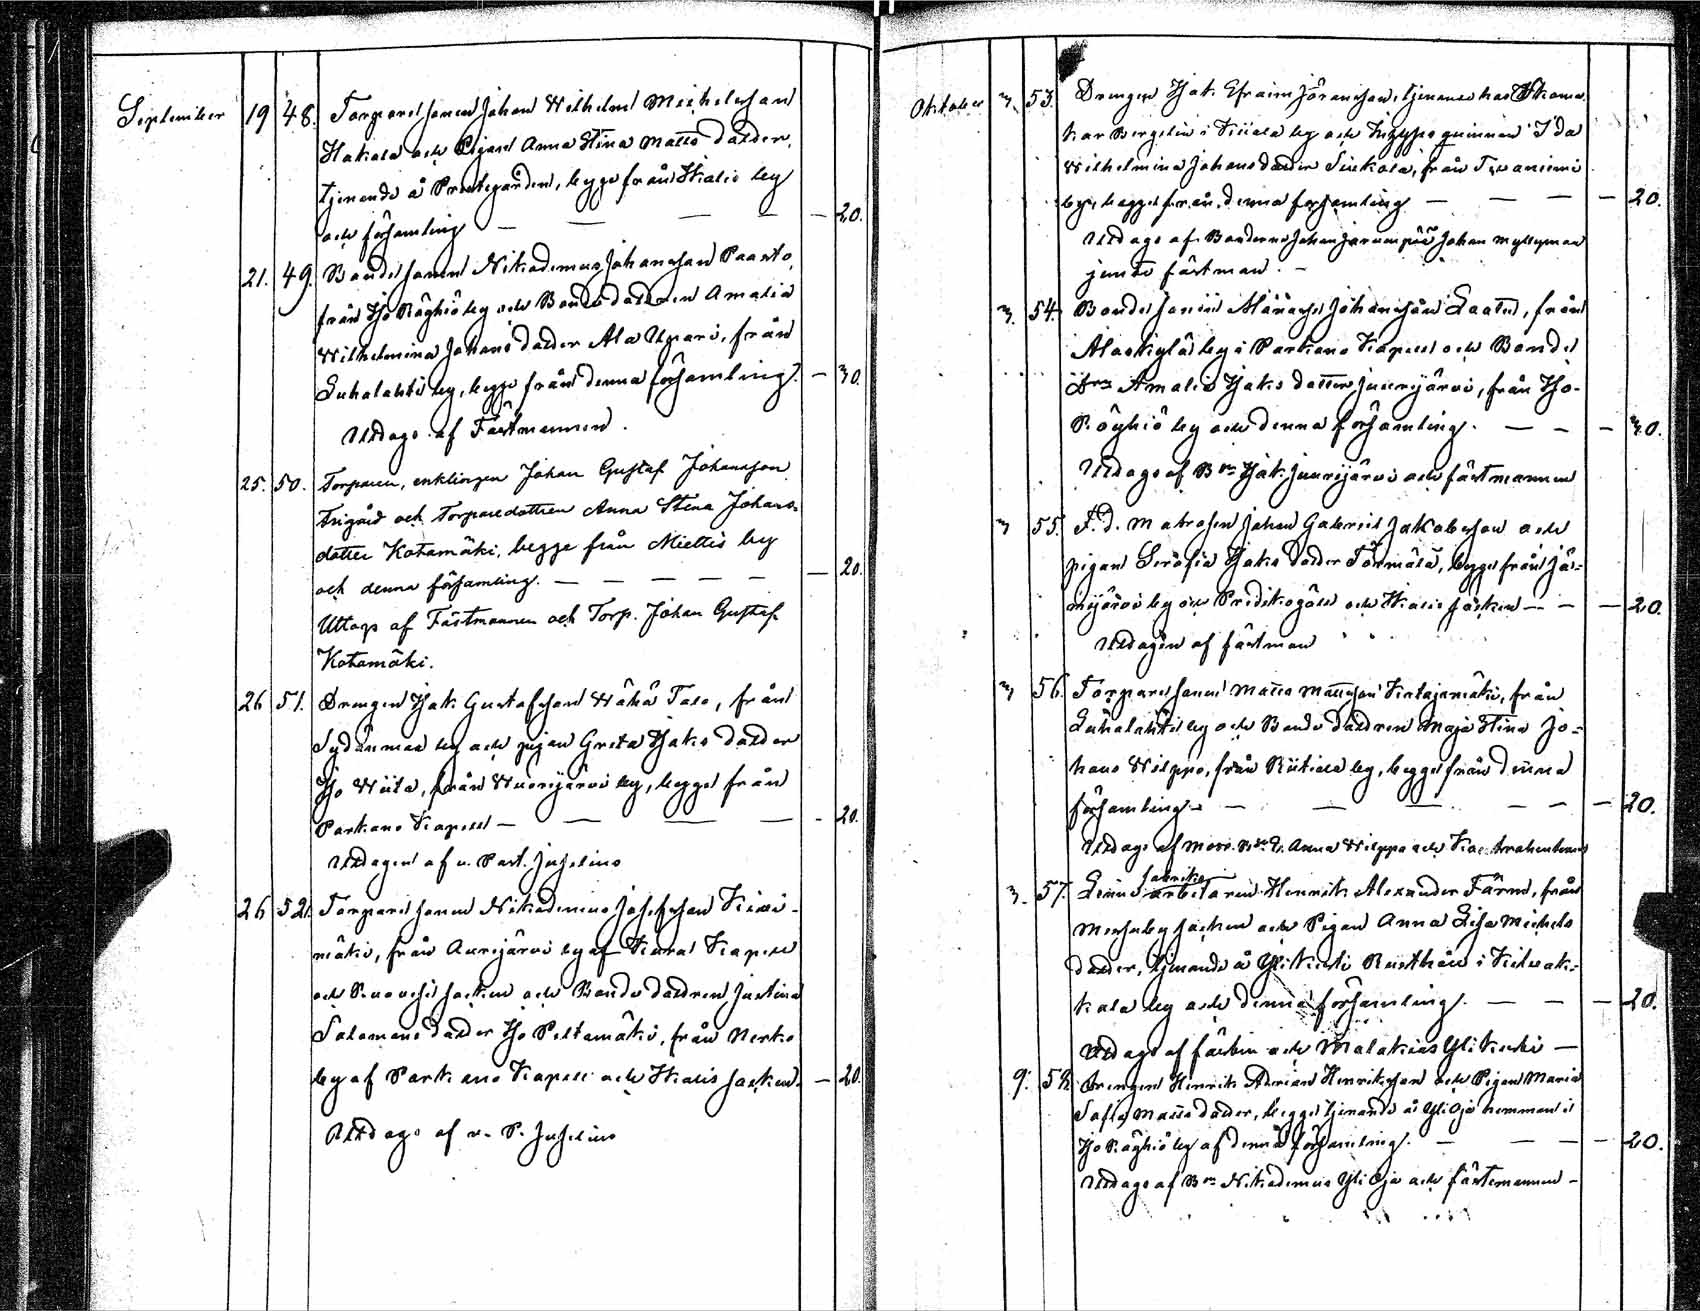 September 19 48. Torparesonen Johan Wilhelm Michelsson
Hakala och Pigan Anna Stina Matts dotter,
tjenande å Prestgården, begge från Ikalis by
och församling — — — — 20.
21. 49. Bondesonen Nikodemus Johansson Paasto,
från Kyröskoski by och Bondedottren Amalia
Wilhelmina Johans dotter Ala Upari, från
Luhalahti by, begge från denna församling. — 30.
Uttogs af Fästmannen.
25. 50. Torparen, enklingen Johan Gustaf Johansson
Frigård och Torparedottren Anna Stina Johans-
dotter Kotamäki, begge från Miettis by
och denna församling. — — — — — — 20.
Uttogs af Fästmannen och Torp. Johan Gustaf
Kotamäki.
26 51. Drengen Isak Gustafsson Wähä Talo, från
Sydänmaa by och pigan Greta Isaks dotter
Iso Wiita, från Wuorijärvi by, begge från
Parkano Kapell — — — — - 20.
Uttagen af v. Past. Juselius
26 52. Torparesonen Nikodemus Josefsson Kivi-
mäki, från Aurejärvi by af Kuru Kapell
och Ruovesi socken och Bondedottren Justina
Salomons dotter Iso Peltomäki, från Nerko
by af Parkano Kapell och Ikalis socken. — 20.
Uttogs af v. P. Juselius
Oktober 3. 53. Drengen Isak Efraim Jöransson, tjenande hos Skoma-
kar Bergelin i Kilvala by och Inhysesqvinnan Ida
Wilhelmina Johansdotter Siukola, från Tevaniemi
by, begge från denna församling — — — — 20.
Uttogs af Bönderne Johan Johan Myllymaa
jemte fästman. -
3. 54. Bondesonen Johansson Laato, från
Alaskylä by i Parkano Kapell och Bonde
Dtrn Amalia Isaks dotter Juurijärvi, från
by och denna församling. — — — 30.
Uttogs af Bdn Isak Juurijärvi och fästmannen
3 55. F. d. Matrosen Johan Gabriel Jakobsson och
pigan Serafia Isaks dotter Törmälä, begge från Jä-
mijärvi by och Predikogäll och Ikalis socken — — — 20.
Uttagen af fästman
3 56. Torparesonen Matts Mattsson Kintajamäki, från
Luhalahti by och Bondedottren Maja Stina Jo-
hans Wilppo, från Riitiala by, begge från denna
församling — — — — — — 20.
Uttogs af Anna Wilppo och
3. 57. fabriks
arbetaren Henrik Alexander Färm, från
socken och Pigan Anna Lisa Michels
dotter, tjenande å Ylikesti Rusthåll i Kilvak-
kala by och denna församling. — — — 20.
Uttogs af fästm och Malakias Ylikesti —
9. 58. Drengen Henrik Adrian Henriksson och Pigan Maria
Sofia Matts dotter, begge tjenande å Yli Oja hemman i
by af denna församling. — — — — 20.
Uttogs af Bdn Nikodemus Yli Oja och fästemannen -